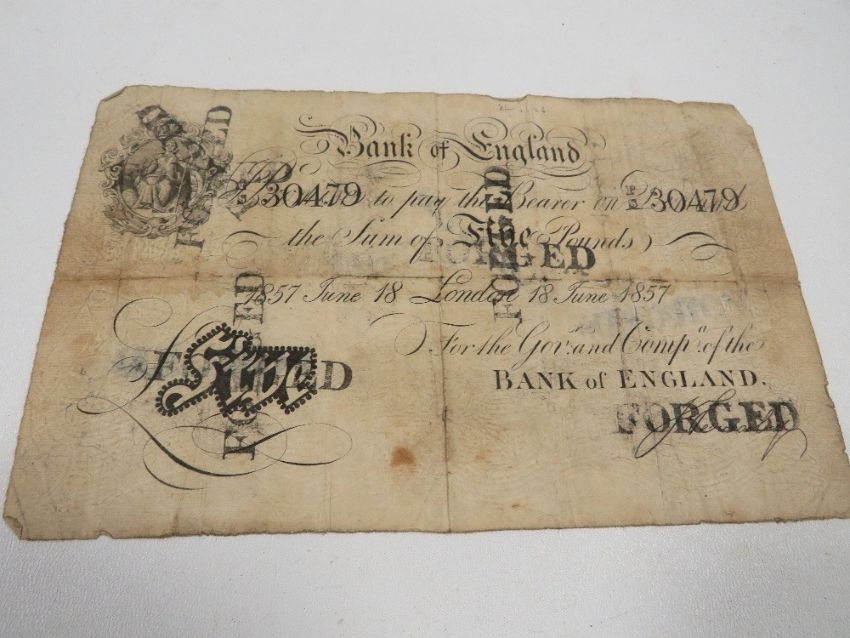 Bank of England
P/S 30479 to pay the Bearer on P/S 30479
the Sum of Five Pounds
1857 June 18 London 18 June 1857
For the Gov.r and Comp.a of the
BANK of ENGLAND.
Five
FORGED
FORGED
FORGED
FORGED
FORGED
FORGED